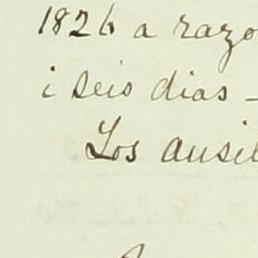 1826 a razo
i seis dias -
Los ausil